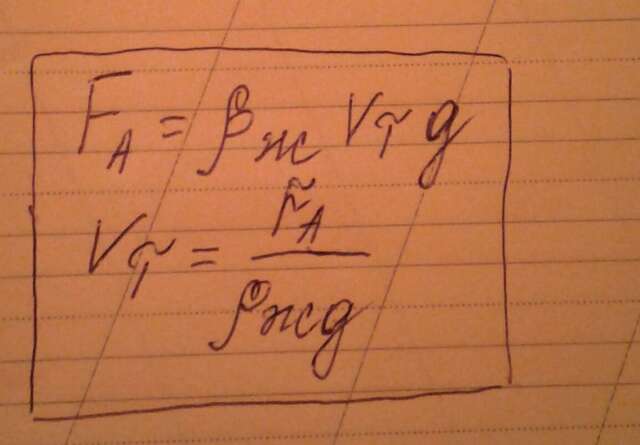 F_A = ρ_ж V_т g
V_т = F_A / ρ_ж g